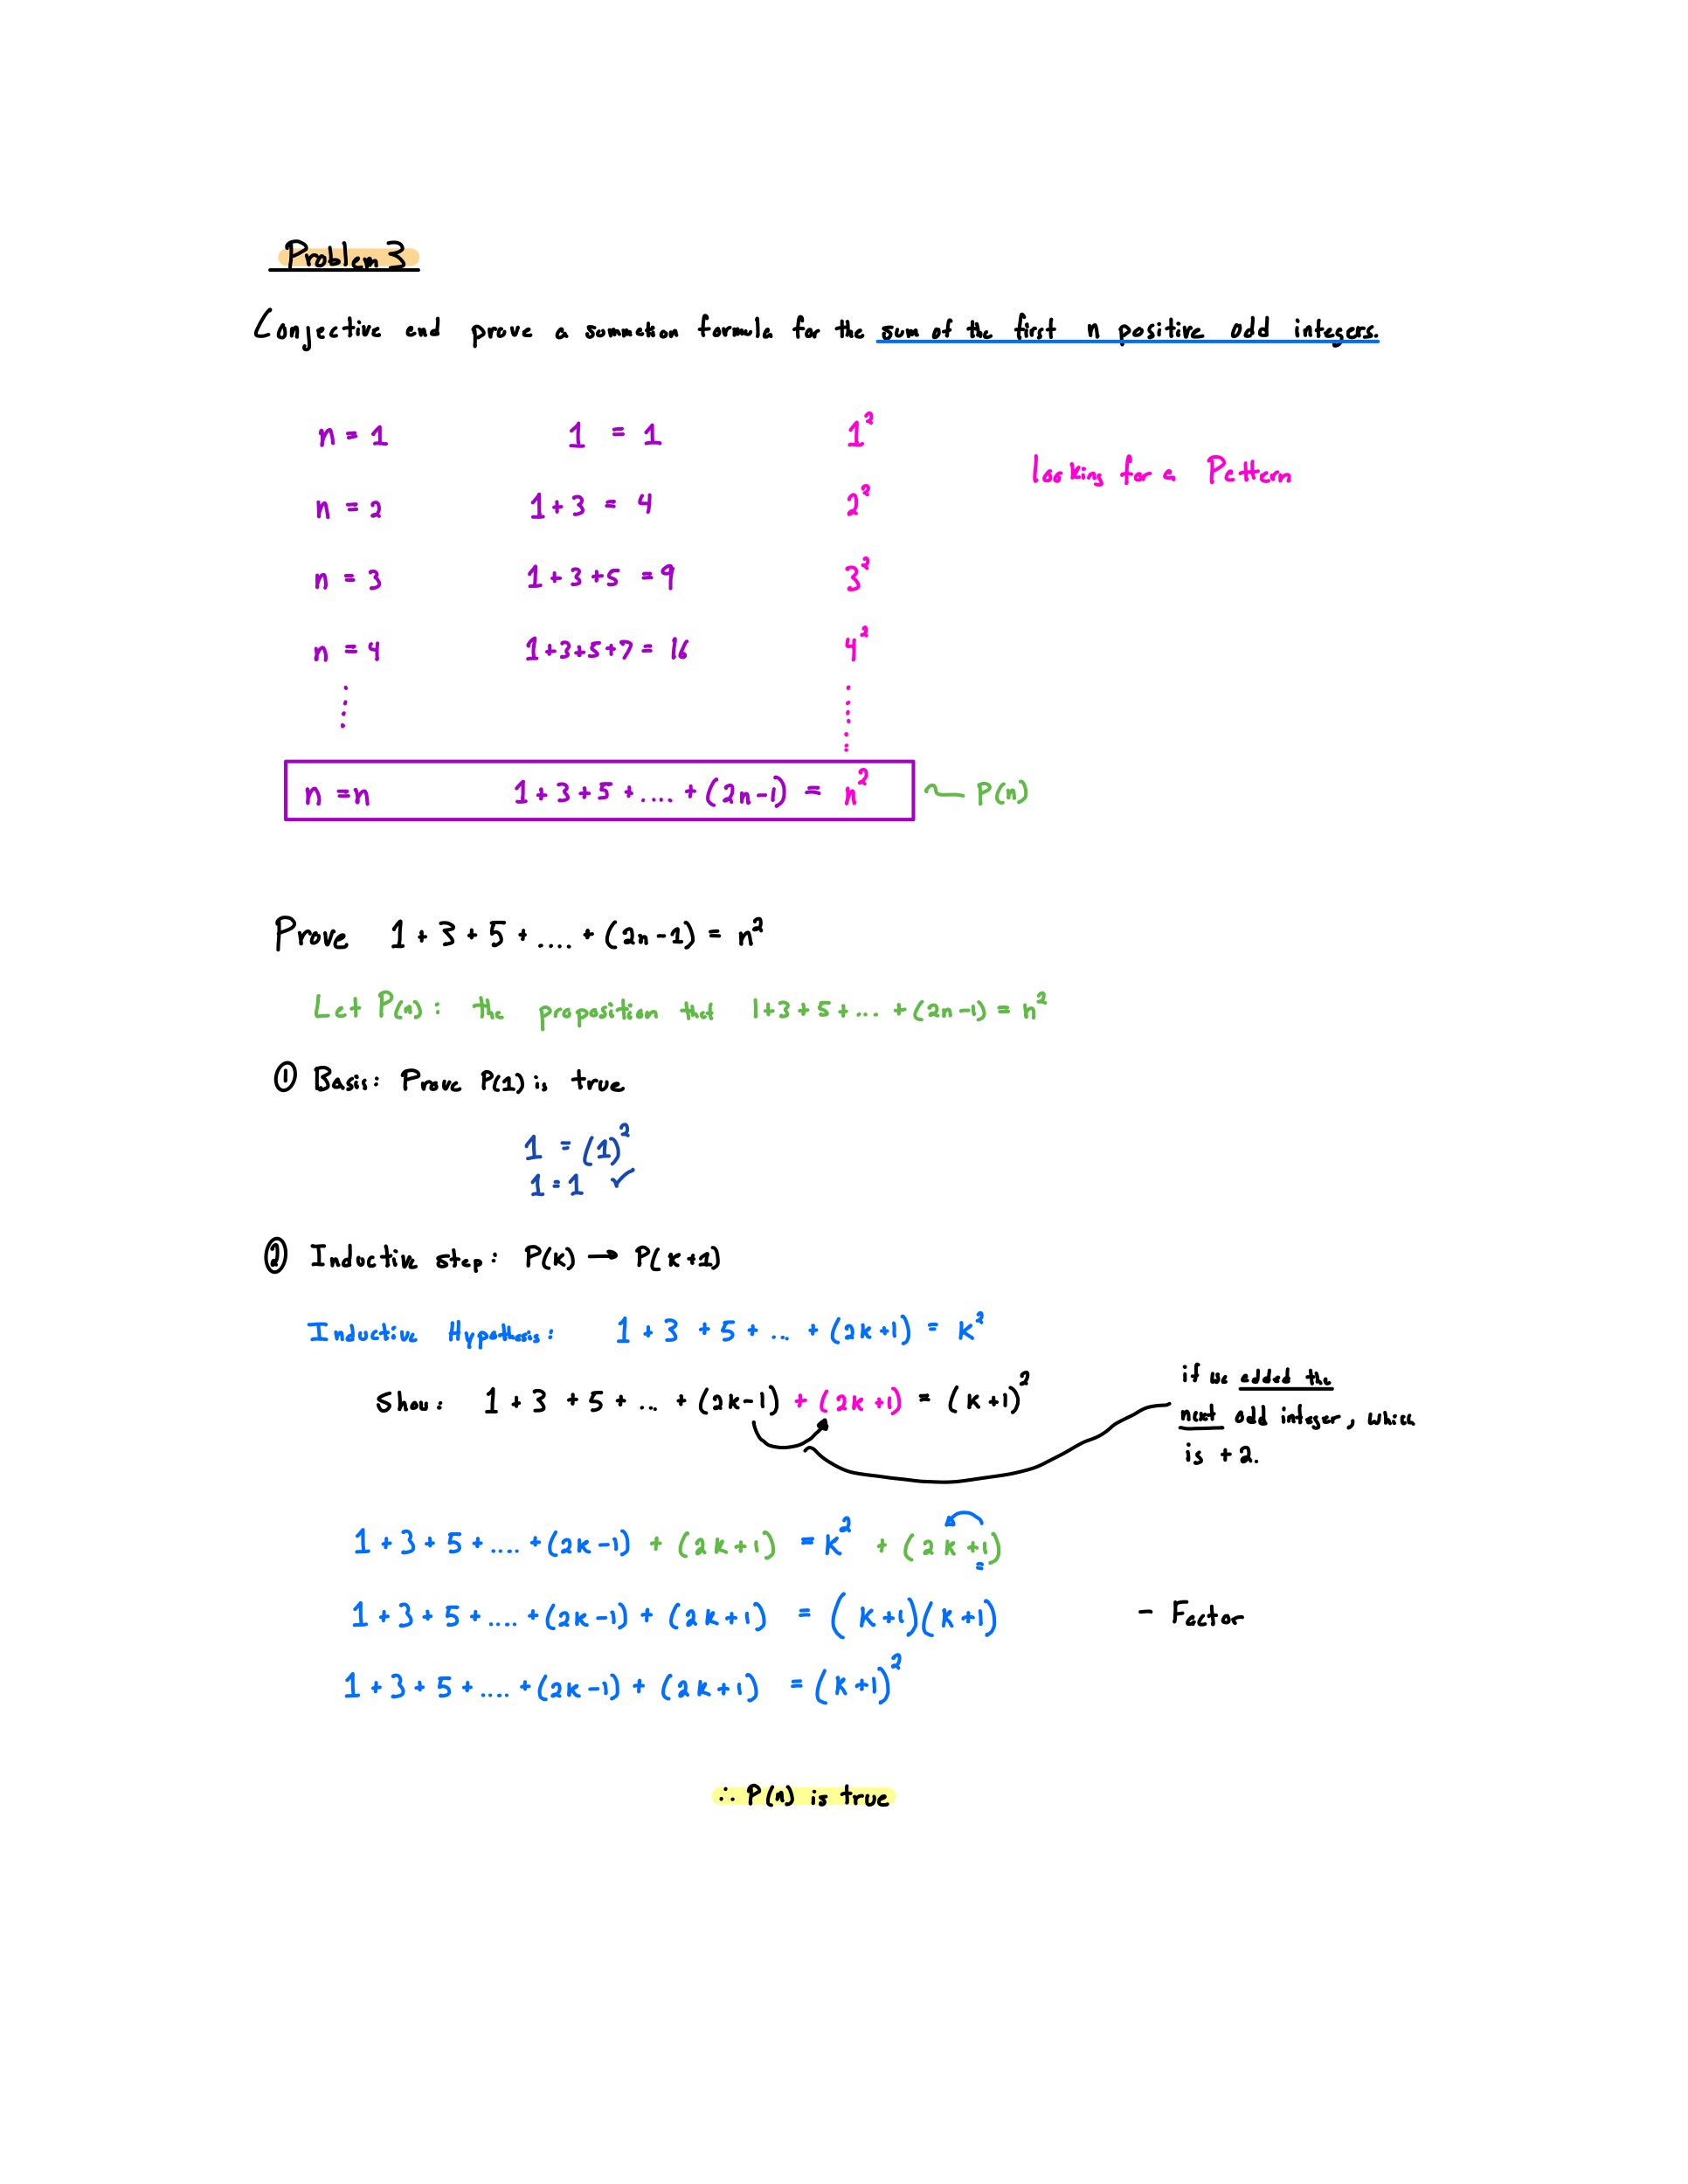 Problem 3
Conjective and prove a summation formula for the sum of the first n positive odd integers.
n = 1 1 = 1 1²
looking for a Pattern
n = 2 1+3 = 4 2²
n = 3 1+3+5 = 9 3²
n = 4 1+3+5+7 = 16 4²
n = n 1+3+5+....+(2n-1) = n² P(n)
Prove 1+3+5+....+(2n-1) = n²
Let P(n): the proposition that 1+3+5+...+(2n-1) = n²
① Basis: Prove P(1) is true
1 = (1)²
1 = 1 ✓
② Inductive step: P(k) → P(k+1)
Inductive Hypothesis: 1+3+5+...+(2k+1) = k²
Show: 1+3+5+...+(2k-1)+(2k+1) = (k+1)²
if we added the
next odd integer, which
is +2.
1+3+5+....+(2k-1)+(2k+1) = k²+(2k+1)
1+3+5+....+(2k-1)+(2k+1) = (k+1)(k+1) - Factor
1+3+5+....+(2k-1)+(2k+1) = (k+1)²
∴ P(n) is true